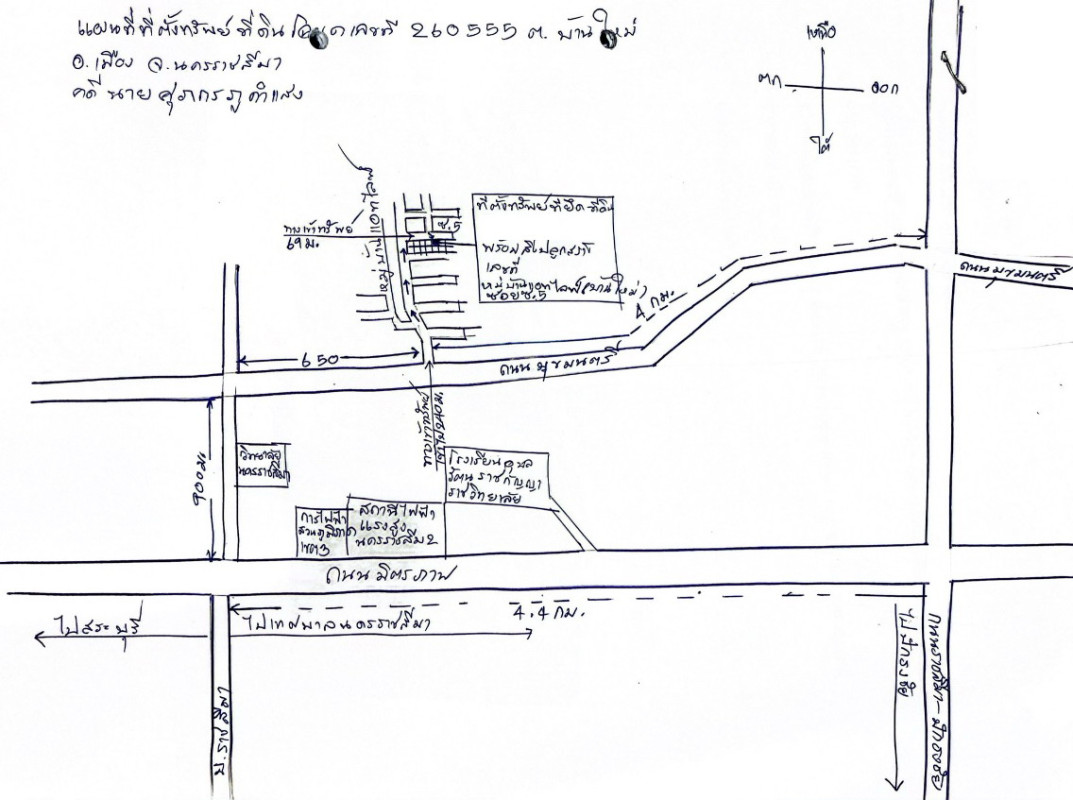 แผนที่ที่ตั้งทรัพย์ ที่ดิน โฉนดเลขที่ 260555 ต. บ้านใหม่
อ. เมือง จ. นครราชสีมา
คดี นาย
เหนือ
ตก
ออก
ใต้
หมู่บ้านแอทไลฟ์
ทางเข้าทรัพย์
69 ม.
ซ.5
ที่ตั้งทรัพย์ที่ยึด ที่ดิน
พร้อมสิ่งปลูกสร้าง
เลขที่
หมู่บ้านแอทไลฟ์ (บ้านใหม่)
ซอย ซ.5
4 กม.
ถนน
650
ถนน
ทางเข้าทรัพย์
900 ม.
วิทยาลัย
นครราชสีมา
โรงเรียน
ราชกัญญา
ราชวิทยาลัย
การไฟฟ้า
ส่วนภูมิภาค
เขต3
สถานีไฟฟ้า
แรงสูง
นครราชสีมา2
ถนน มิตรภาพ
4.4 กม.
ไปสระบุรี
ไปเทศบาลนครราชสีมา
ม. ราชสีมา
ไปปักธงชัย
ถนนราชสีมา-ปักธงชัย